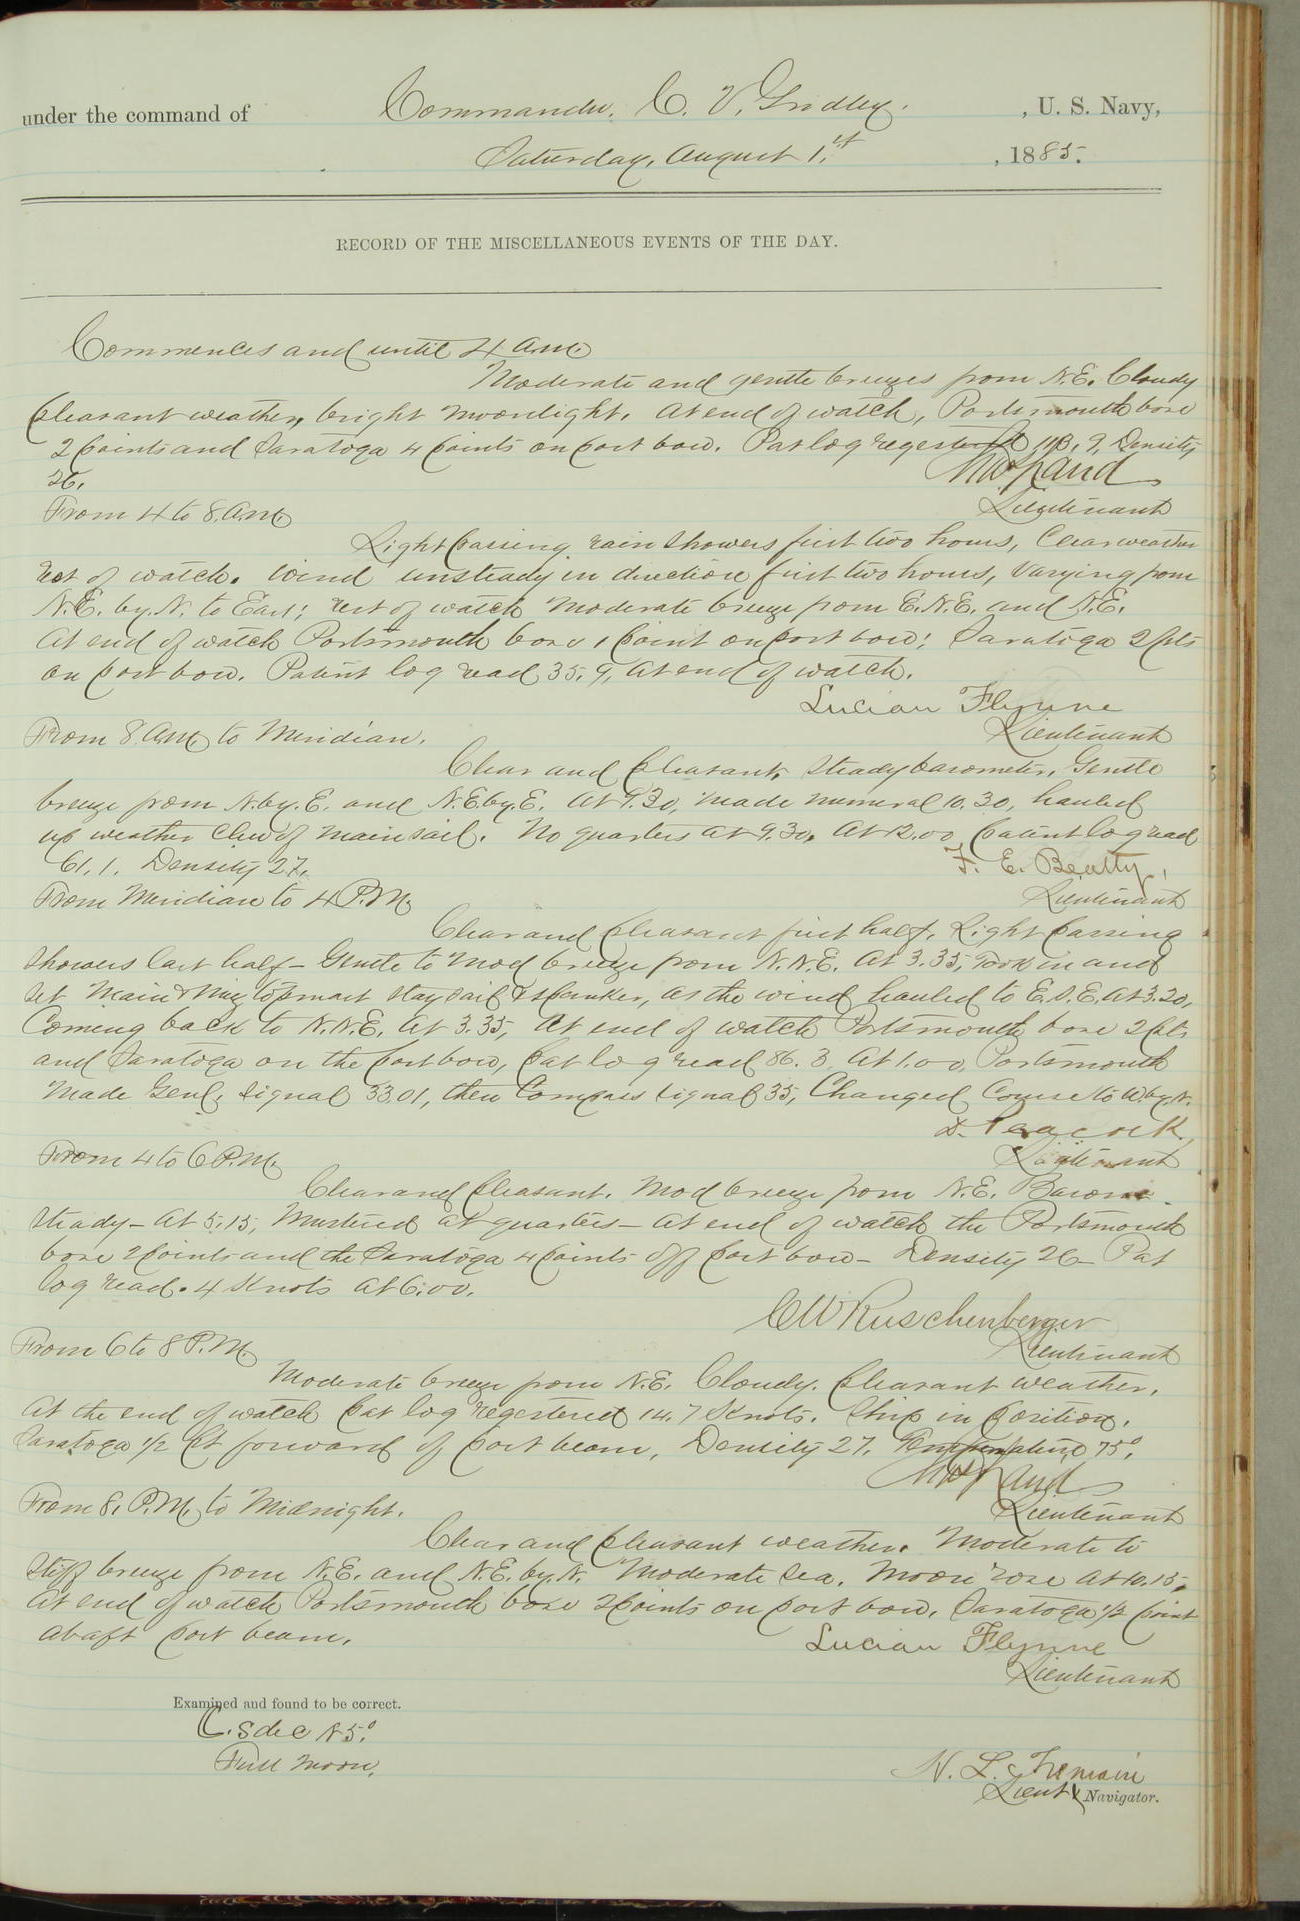 under the command of Commander. C. V. Gridley. , U. S. Navy,
Saturday, August 1.st , 1885.
RECORD OF THE MISCELLANEOUS EVENTS OF THE DAY.
Commences and until 4 a.m.
Moderate and gentle breezes from N.E. Cloudy
pleasant weather, bright moonlight. At end of watch, Portsmouth bore
2 points and Saratoga 4 points on port bow. Pat log regestered 113.9, Density
26.
Lieutenant
From 4 to 8. a.m.
Light passing rain showers first two hours, Clear weather
rest of watch. Wind unsteady in direction first two hours, varying from
N.E. by. N. to East; rest of watch moderate breeze from E.N.E. and N.E.
At end of watch Portsmouth bore 1 point on port bow; Saratoga 2 pts
on port bow. Patent log read 35.9, at end of watch.
Lucian Flynne
Lieutenant
From 8 a.m. to Meridian.
Clear and pleasant, steady barometer. Gentle
breeze from N.by.E. and N.E.by.E. At 9.30, made numeral 10.30, hauled
up weather clew of mainsail. No quarters at 9.30. At 12.00 patent log read
61.1. Density 27.
F. E. Beatty,
Lieutenant
From Meridian to 4 P.M.
Clear and pleasant first half, Light passing
showers last half – Gentle to mod breeze from N.N.E. At 3.35, Took in and
set main & miz topmast staysail & spanker, as the wind hauled to E.S.E. at 3.20,
Coming back to N.N.E. at 3.35, At end of watch Portsmouth bore 2 pts
and Saratoga on the port bow, pat log read 86.3 At 1.00, Portsmouth
made Genl. signal 3301, then Compass signal 35, Changed Course to W.by.N.
D. Peacock.
Lieutenant
From 4 to 6 P.M.
Clear and pleasant. Mod breeze from N.E. Barom.
steady – At 5.15, Mustered at quarters – At end of watch the Portsmouth
bore 2 points and the Saratoga 4 points off port bow – Density 26 – Pat
log read. 4 Knots at 6.00.
C W Ruschenberger
Lieutenant
From 6 to 8 P.M.
Moderate breeze from N.E. Cloudy. pleasant weather.
At the end of watch pat log regestered 14.7 Knots. Ship in position.
Saratoga 1/2 pt forward of port beam, Density 27. Temperature 75°.
Lieutenant
From 8. P.M. to Midnight.
Clear and pleasant weather. Moderate to
stiff breeze from N.E. and N.E. by. N. Moderate sea. Moon rose at 10.15.
At end of watch Portsmouth bore 2 points on port bow. Saratoga 1/2 point
abaft port beam.
Lucian Flynne
Lieutenant
Examined and found to be correct.
Full Moon.
Lieut & Navigator.